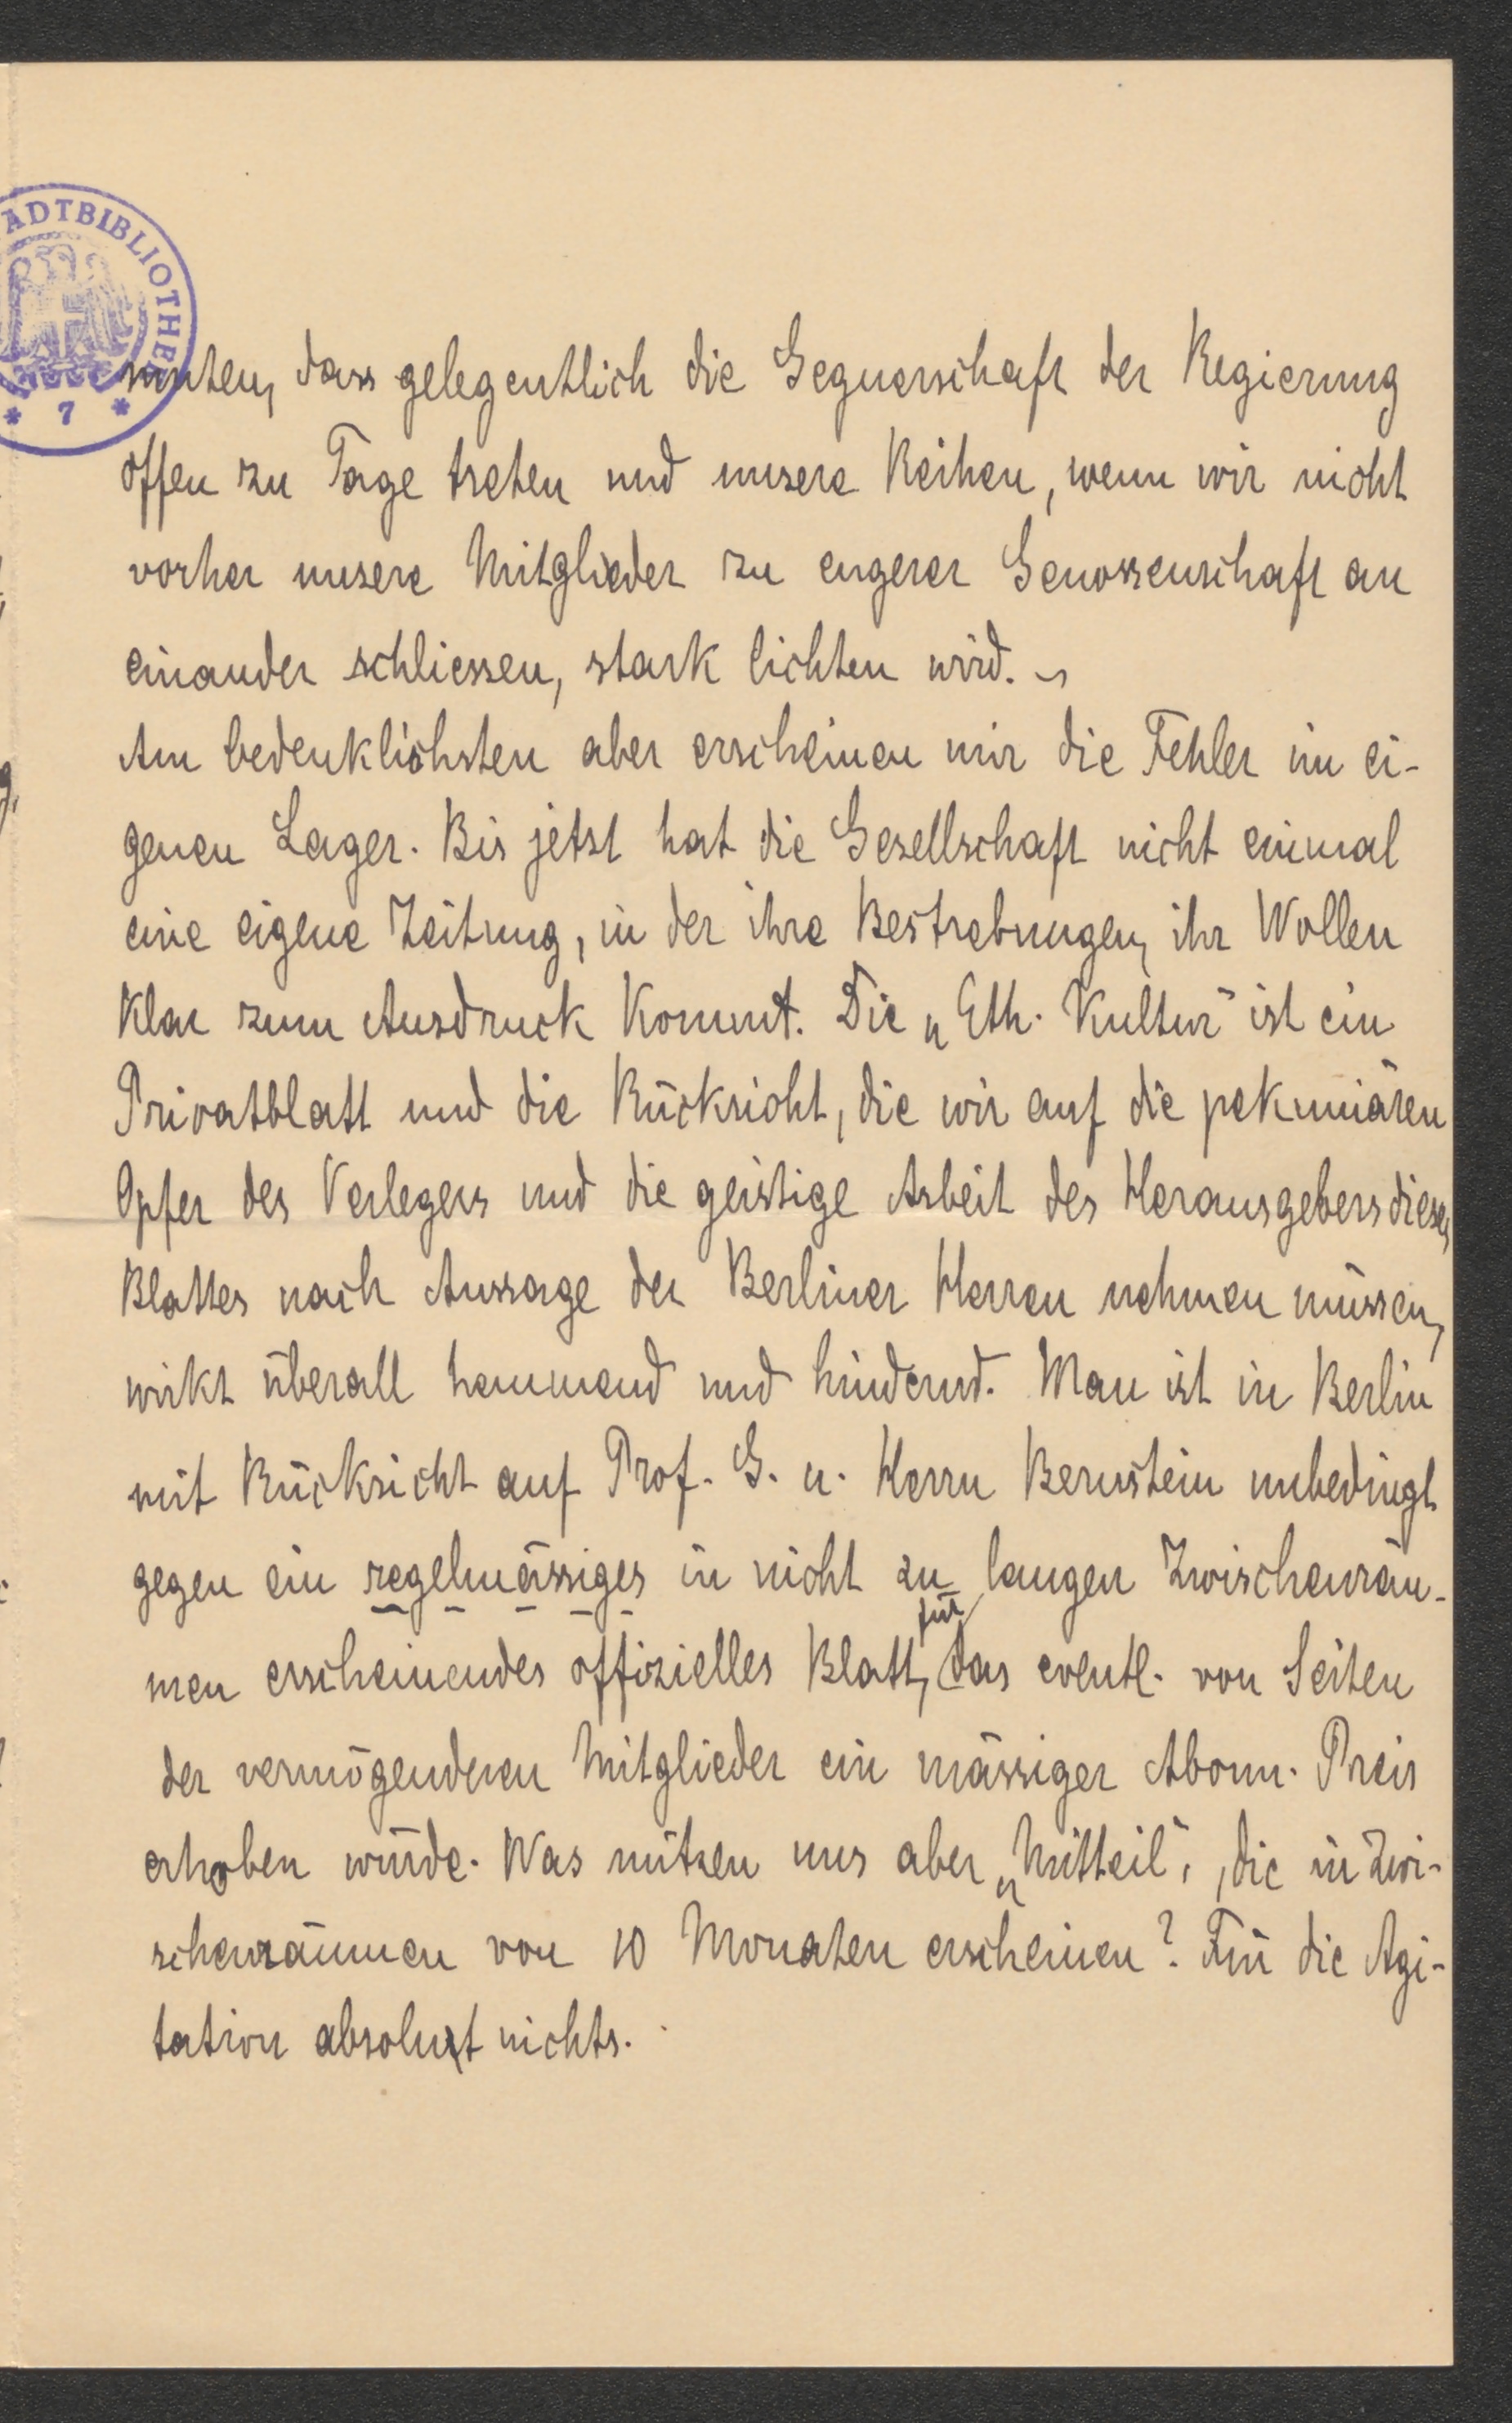 ADTBIBLIOTHE
* 7 *
muten, dass gelegentlich die Gegnerschaft der Regierung
offen zu Tage treten und unsere Reihen, wenn wir nicht
vorher unsere Mitglieder zu engerer Genossenschaft an
einander schliessen, stark lichten wird. ~
Am bedenklichsten aber erscheinen mir die Fehler im ei-
genen Lager. Bis jetzt hat die Gesellschaft nicht einmal
eine eigene Zeitung, in der ihre Bestrebungen, ihr Wollen
klar zum Ausdruck kommt. Die „Eth. Kultur" ist ein
Privatblatt und die Rücksicht, die wir auf die pekuniären
Opfer des Verlegers und die geistige Arbeit des Herausgebers dieses
Blattes nach Aussage der Berliner Herren nehmen müssen,
wirkt überall hemmend und hindernd. Man ist in Berlin
mit Rücksicht auf Prof. G. u. Herrn Bernstein unbedingt
gegen ein regelmässiges in nicht zu langen Zwischenräu-
men erscheinendes offizielles Blatt, für das eventl. von Seiten
der vermögenderen Mitglieder ein mässiger Abonn. Preis
erhoben würde. Was nützen uns aber „Mitteil", die in Zwi-
schenräumen von 10 Monaten erscheinen? Für die Agi-
tation absolut nichts.